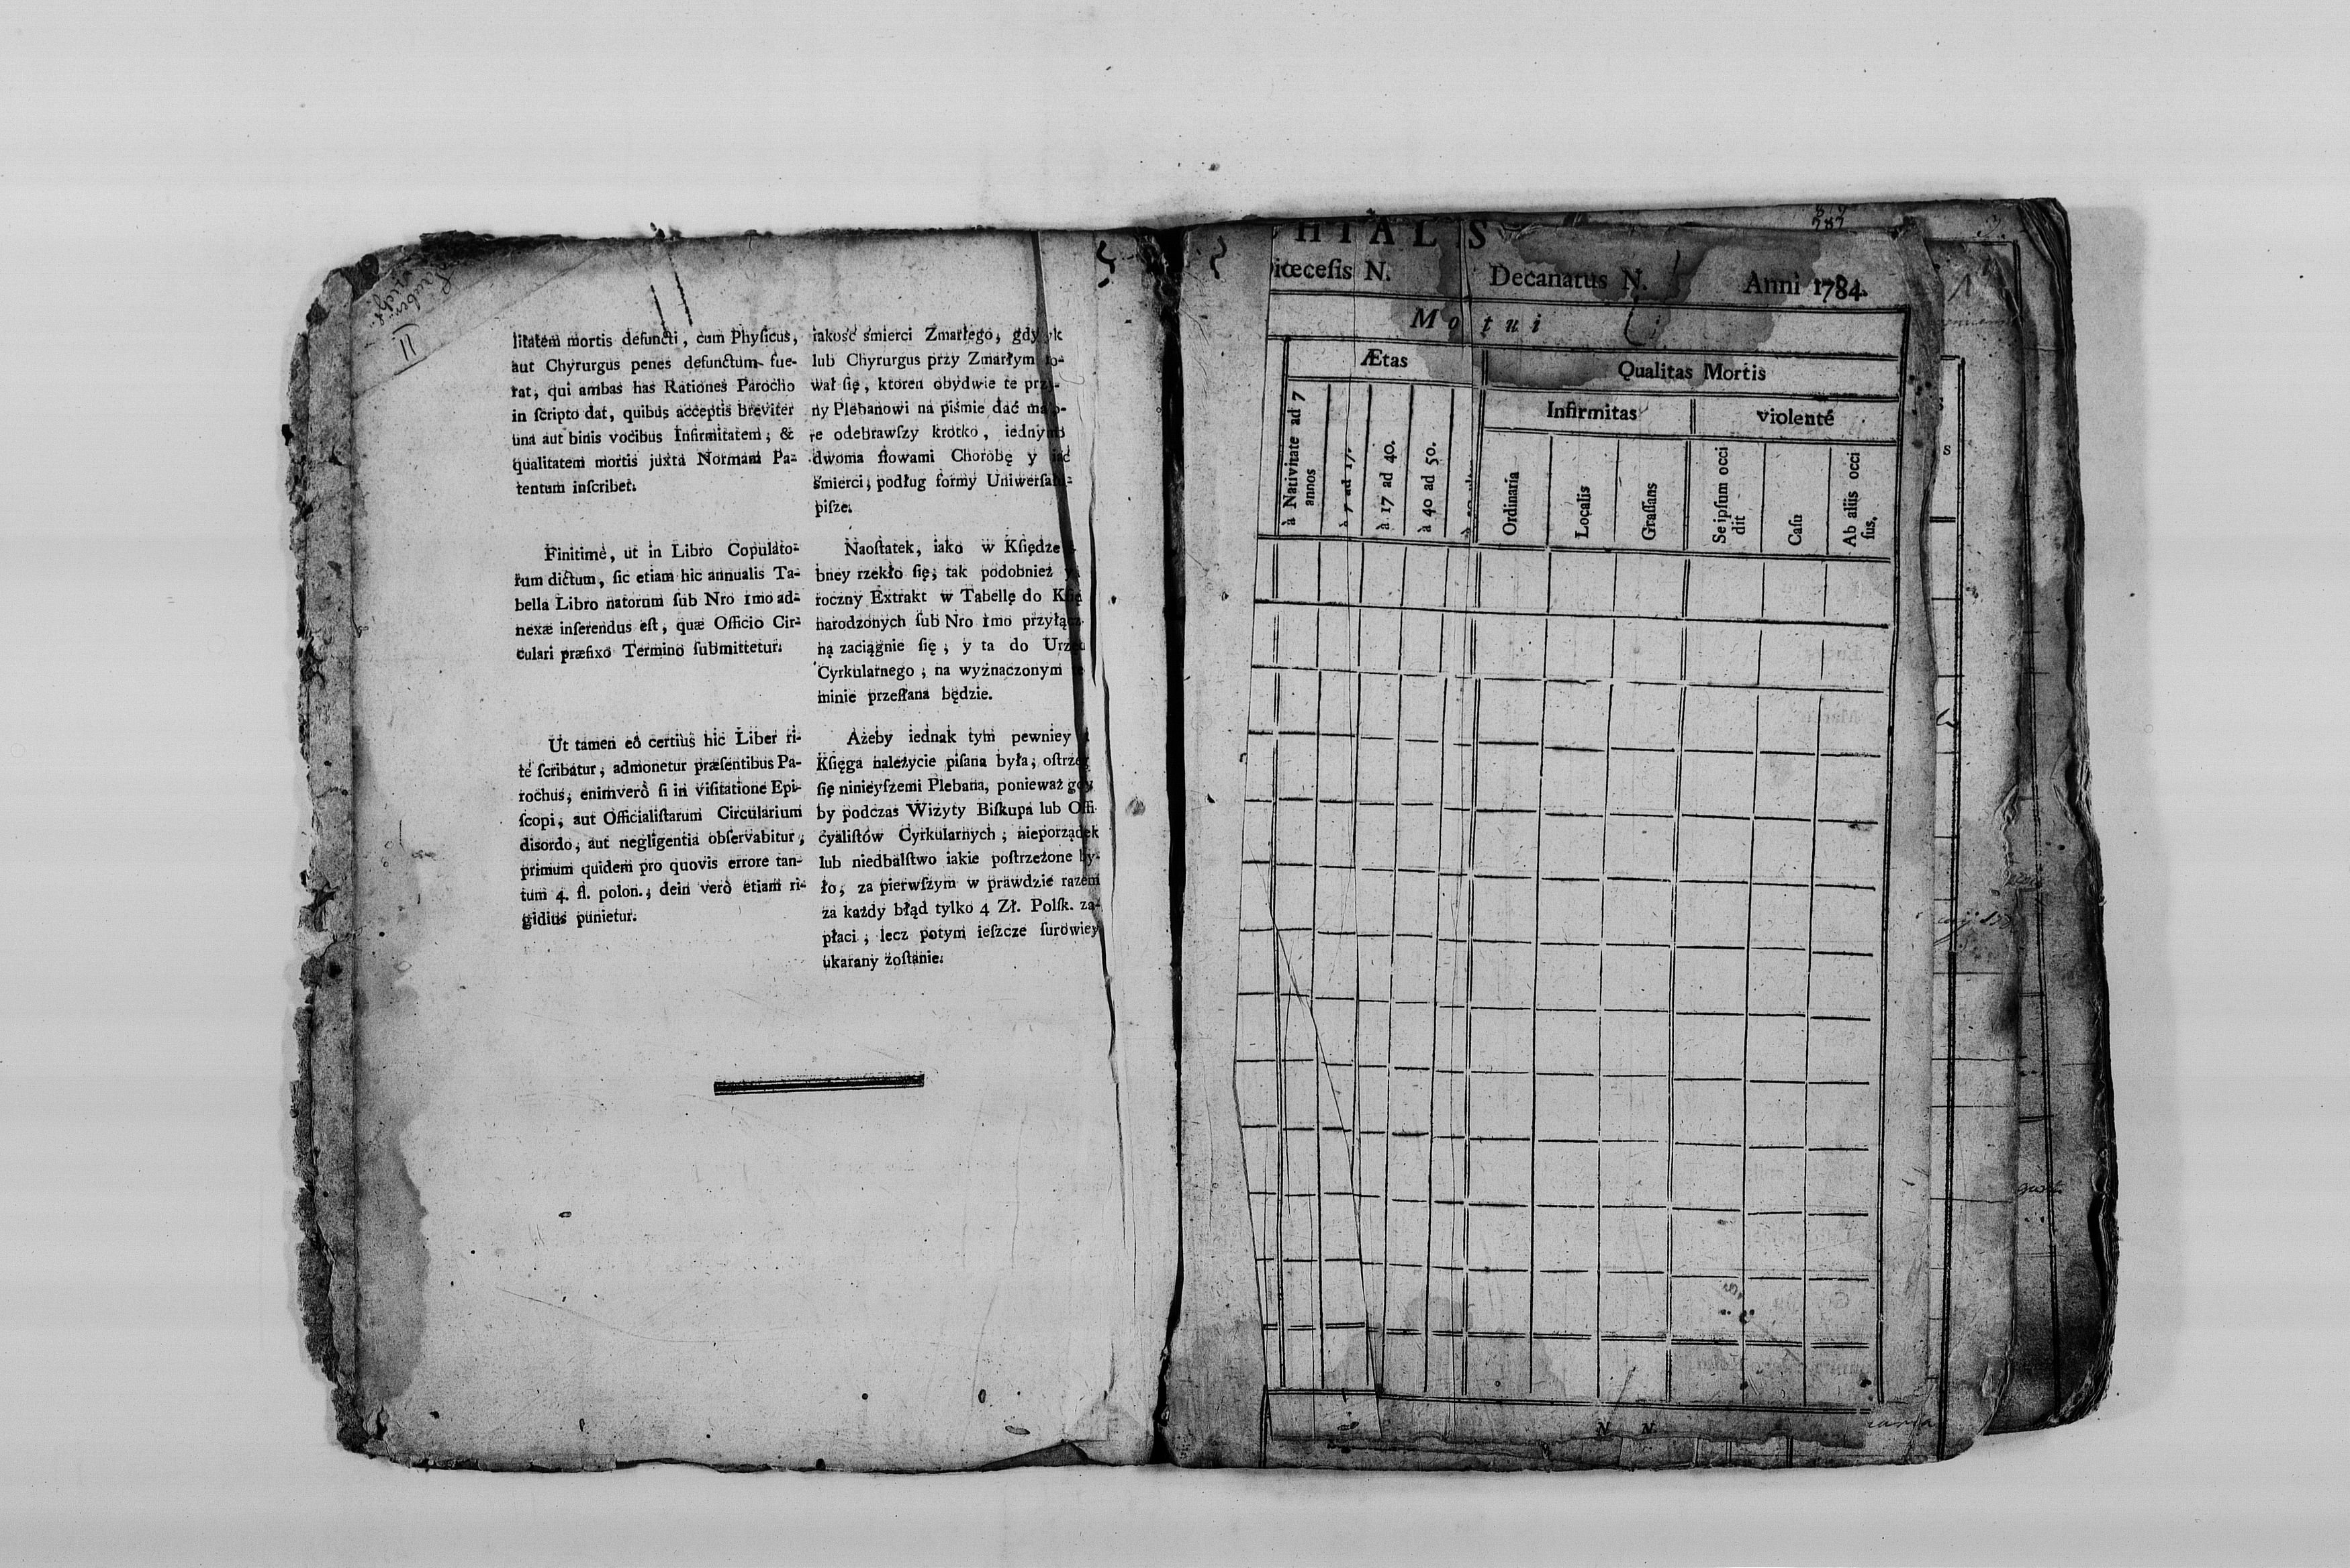 II
litatem mortis defuncti, cum Phyſicus,
aut Chyrurgus penes defunctum fue-
rat, qui ambas has Rationes Parocho
in ſcripto dat, quibus acceptis breviter
una aut binis vocibus Infirmitatem, &
qualitatem mortis juxta Normam Pa-
tentum inſcribet.
Finitimè, ut in Libro Copulato-
rum dictum, ſic etiam hic annualis Ta-
bella Libro natorum ſub Nro 1mo ad-
nexæ inſerendus eſt, quæ Officio Cir-
culari præfixo Termino ſubmittetur.
Ut tamen eò certius hic Liber ri-
tè ſcribatur, admonetur præſentibus Pa-
rochus, enimverò ſi in viſitatione Epi-
ſcopi, aut Officialiſtarum Circularium
disordo, aut negligentia obſervabitur,
primum quidem pro quovis errore tan-
tum 4. fl. polon., dein verò etiam ri-
gidius punietur.
iakość śmierci Zmarłego, gdy
lub Chyrurgus przy Zmarłym
wał ſię, ktoren obydwie te
ny Plebanowi na piśmie dać
re odebrawſzy krotko, iedny
dwoma ſłowami Chorobę y
śmierci, podług formy Uniwerſa
piſze.
Naoſtatek, iako w Kſiędze
bney rzekło ſię, tak podobnież
roczny Extrakt w Tabellę do
narodzonych ſub Nro 1mo przyłą
ną zaciągnie ſię, y ta do
Cyrkularnego, na wyznaczonym
minie przeſłana będzie.
Ażeby iednak tym pewniey
Kſięga należycie piſana była, oſtrze
ſię ninieyſzemi Plebana, ponieważ
by podczas Wizyty Biſkupa lub Offi-
cyaliſtów Cyrkularnych, nieporządek
lub niedbalſtwo iakie poſtrzeżone by-
ło, za pierwſzym w prawdzie razem
za każdy błąd tylko 4 Zł. Polſk. za-
płaci, lecz potym ieſzcze ſurowiey
ukarany zoſtanie.
HIALIS
iœceſis N. Decanatus N. Anni 1784.
Mortui
Ætas
Qualitas Mortis
Infirmitas
violentè
à Nativitate ad 7
annos
à 7 ad 17.
à 17 ad 40.
à 40 ad 50.
Ordinaria
Localis
Graſſans
Se ipſum occi
dit
Caſu
Ab aliis occi
ſus.